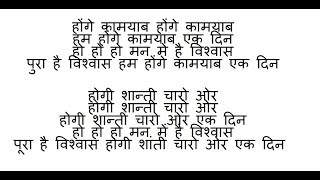 होंगे कामयाब होंगे कामयाब
हम होंगे कामयाब एक दिन
हो हो हो मन में है विश्वास
पुरा है विश्वास हम होंगे कामयाब एक दिन
होगी शान्ती चारो ओर
होगी शान्ती चारो ओर
होगी शान्ती चारो ओर एक दिन
हो हो हो मन में है विश्वास
पूरा है विश्वास होगी शाती चारो ओर एक दिन